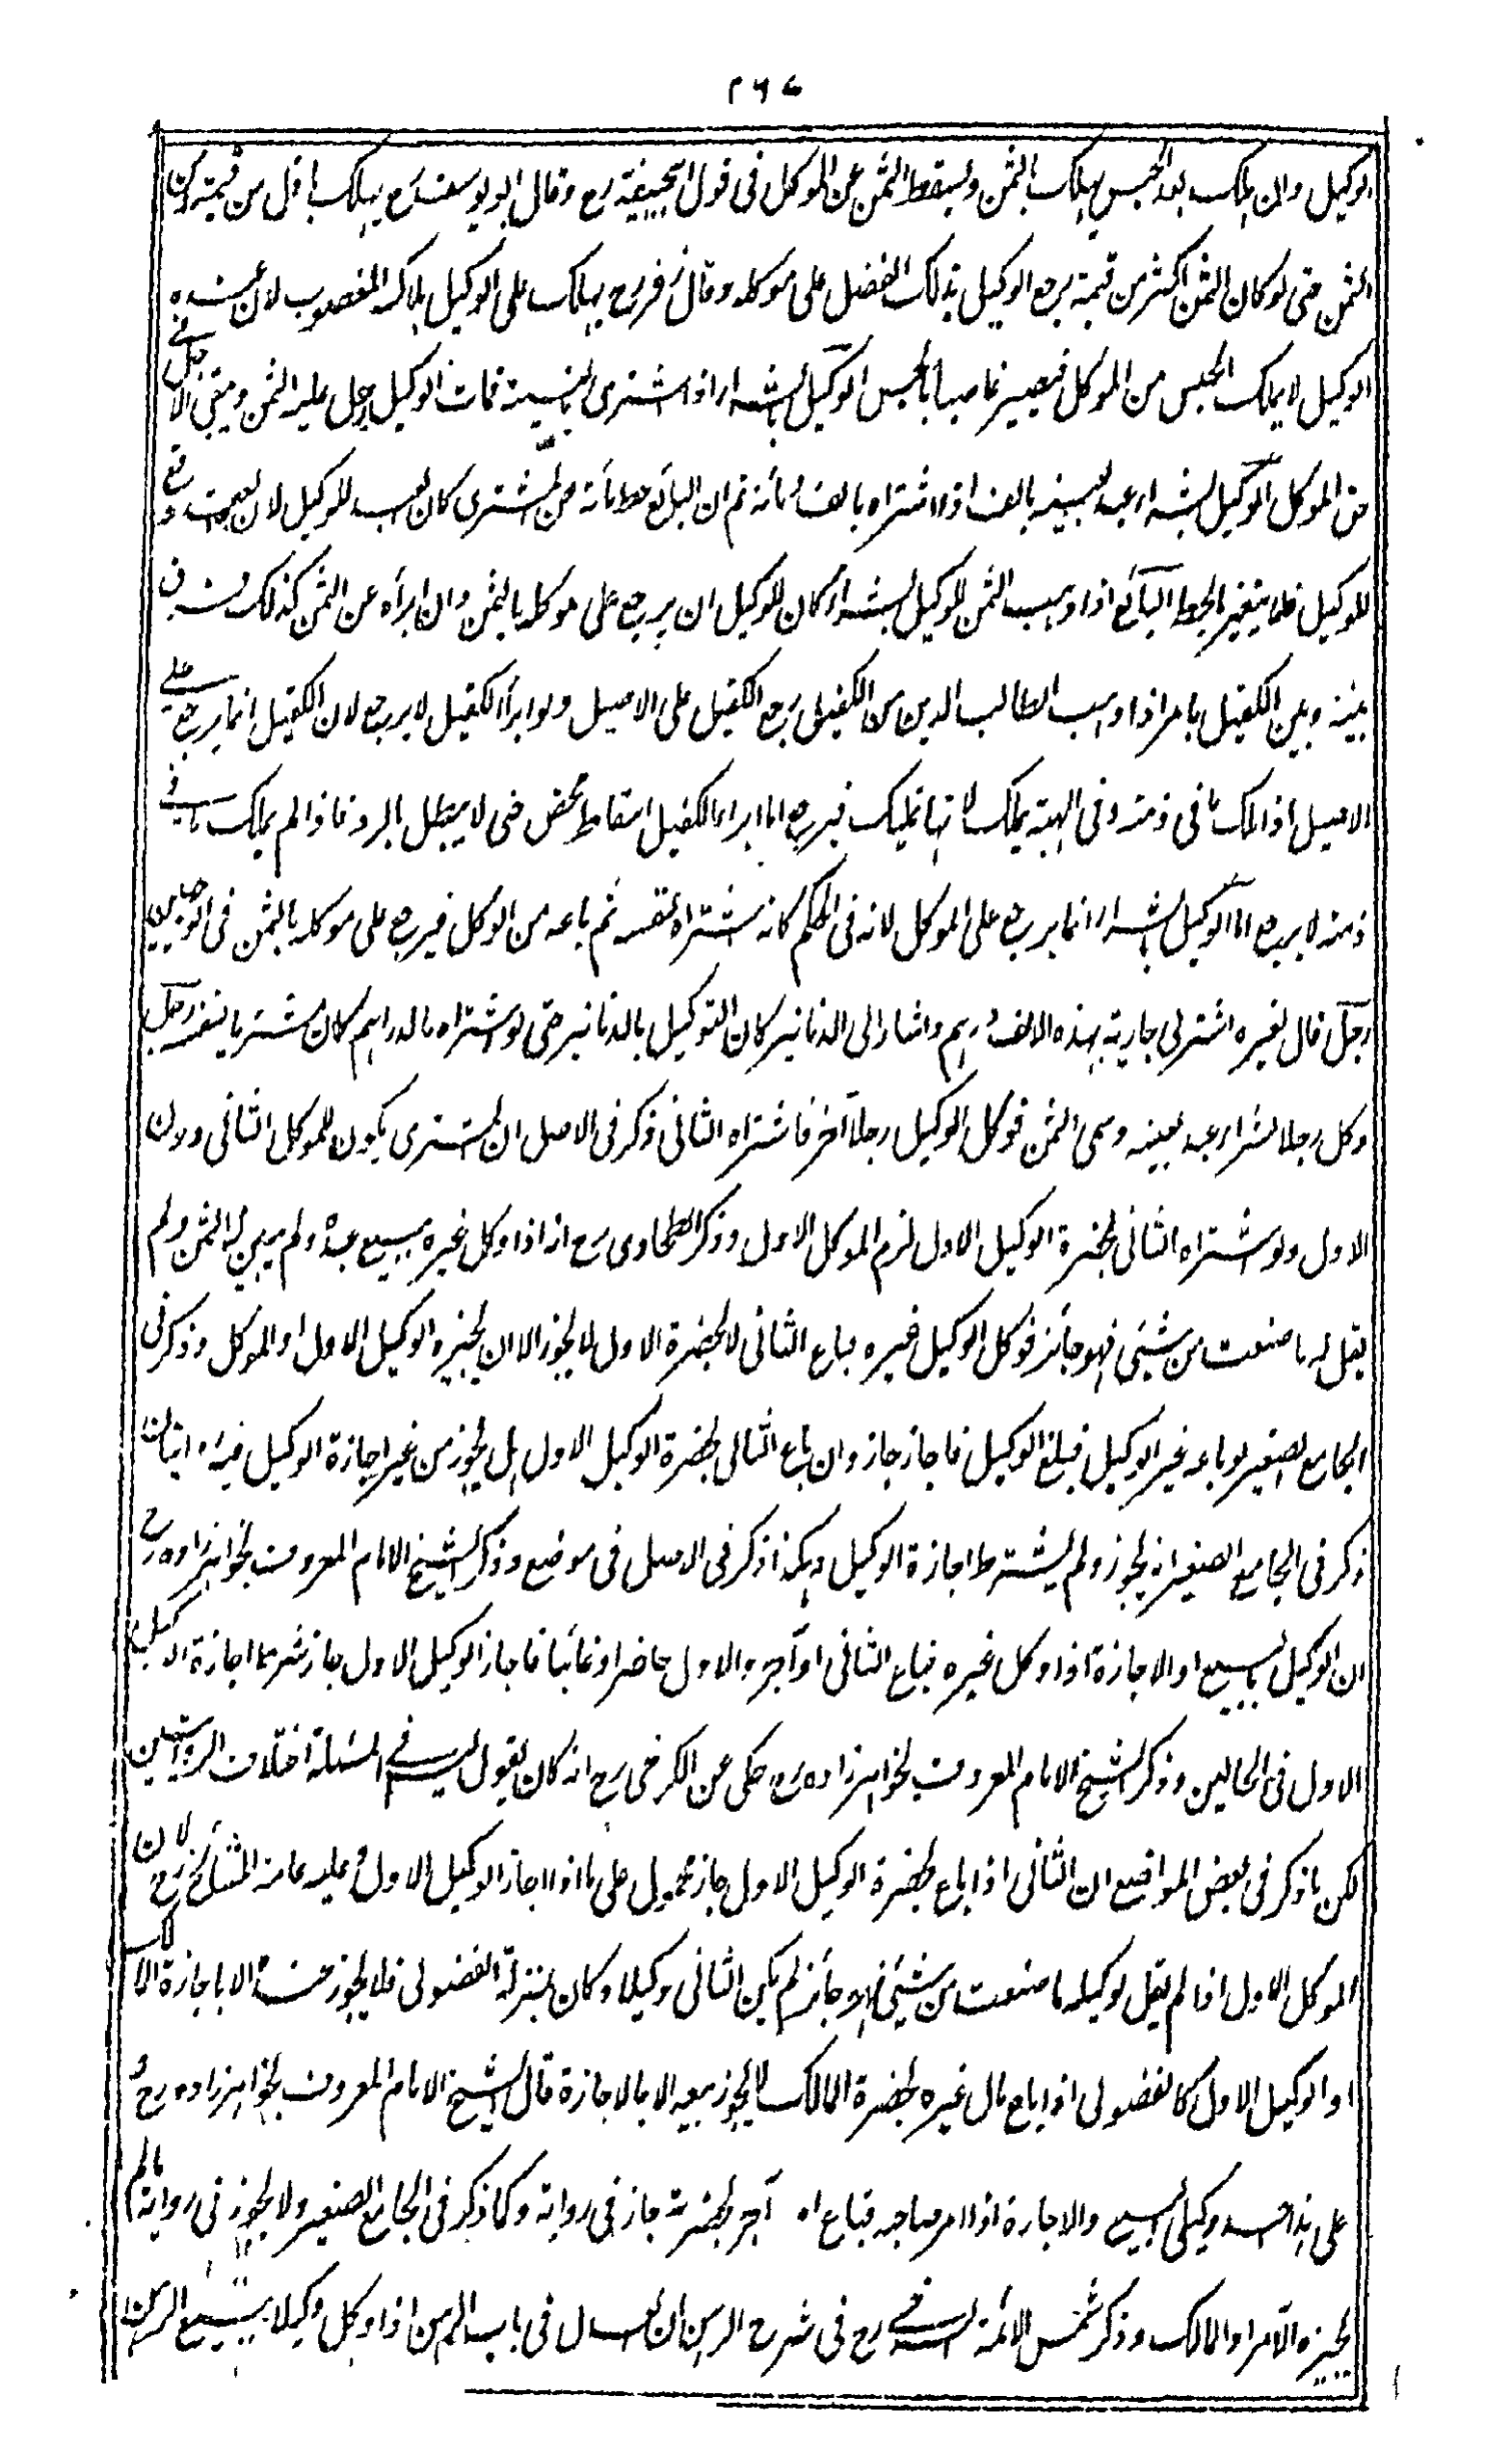 ۲۶۷
الوكيل وان هلك بعد الحبس يهلك بالثمن ويسقط الثمن عن الموكل فى قول ابيحنيفة رح وقال ابو يوسف رح يهلك باقل من قيمته ومن
الثمن حتى لو كان الثمن اكثر من قيمته يرجع الوكيل بذلك الفضل على موكله وقال زفر رح يهلك على الوكيل هلاك المغصوب لان عنده
الوكيل لا يملك الحبس من الموكل فيصير غاصبا بالحبس الوكيل بالشراء اذا اشترى بالنسيئة فمات الوكيل حل عليه الثمن ويبقى الاجل فى
حق الموكل الوكيل بشراء عبد بعينه بالف اذا اشتراه بالف ومائة ثم ان البائع حط مائة عن المشترى كان العبد للوكيل لان العقد وقع
للوكيل فلا يتغير بالحط البائع اذا وهب الثمن للوكيل بالشراء كان للوكيل ان يرجع على موكله بالثمن وان ابرأه عن الثمن كذلك فرق
بينه وبين الكفيل بامر اذا وهب الطالب الدين من الكفيل رجع الكفيل على الاصيل ولو ابرأ الكفيل لا يرجع لان الكفيل انما يرجع على
الاصيل اذا ملك ما فى ذمته وفى الهبة يملك لانها تمليك فيرجع اما ابراء الكفيل اسقاط محض حتى لا يبطل بالرد فاذا لم يملك ما فى
ذمته لا يرجع اما الوكيل بالشراء انما يرجع على الموكل لانه فى الحكم كانه اشتراه لنفسه ثم باعه من الموكل فيرجع على موكله بالثمن فى الوجهين
رجل قال لغيره اشتر لى جارية بهذه الالف درهم واشار الى الدنانير كان التوكيل بالدنانير حتى لو اشتراه بالدراهم كان مشتريا لنفسه رجل
وكل رجلا بشراء عبد بعينه وسمى الثمن فوكل الوكيل رجلا آخر فاشتراه الثانى ذكر فى الاصل ان المشترى يكون للموكل الثانى دون
الاول ولو اشتراه الثانى بحضرة الوكيل الاول لزم الموكل الاول وذكر الطحاوى رح انه اذا وكل غيره ببيع عبده ولم يبين له الثمن ولم
يقل له ما صنعت من شيئى فهو جائز فوكل الوكيل غيره فباع الثانى لا بحضرة الاول لا يجوز الا ان يجيزه الوكيل الاول او الموكل وذكر فى
الجامع الصغير لو باعه غير الوكيل فبلغ الوكيل فاجاز جاز وان باع الثانى بحضرة الوكيل الاول هل يجوز من غير اجازة الوكيل فيه روايتان
ذكر فى الجامع الصغير انه يجوز ولم يشترط اجازة الوكيل وهكذا ذكر فى الاصل فى موضع وذكر الشيخ الامام المعروف بخواهرزاده رح
ان الوكيل بالبيع او الاجازة اذا وكل غيره فباع الثانى او آجر والاول حاضر او غائبا فاجاز الوكيل الاول جاز شرطا اجازة الوكيل
الاول فى الحالين وذكر الشيخ الامام المعروف بخواهرزاده رح حكى عن الكرخى رح انه كان يقول ليس فى المسئلة اختلاف الروايتين
لكن ما ذكر فى بعض المواضع ان الثانى اذا باع بحضرة الوكيل الاول جاز محمول على ما اذا اجاز الوكيل الاول وعليه عامة المشائخ رح لان
الموكل الاول اذا لم يقل لوكيله ما صنعت من شيئى فهو جائز لم يكن الثانى وكيلا وكان بمنزلة الفضولى فلا يجوز عقده الا باجازة المالك
او الوكيل الاول كالفضولى اذا باع مال غيره بحضرة المالك لا يجوز بيعه الا بالاجازة قال الشيخ الامام المعروف بخواهرزاده رح و
على هذا احد وكيلى البيع والاجارة اذا امر صاحبه فباع او آجر بحضرته جاز فى رواية وكما ذكر فى الجامع الصغير ولا يجوز فى رواية ما لم
يجيزه الآمر او المالك وذكر شمس الائمة السرخسى رح فى شرح الرهن ان العدل فى باب الرهن اذا وكل وكيلا ببيع الرهن